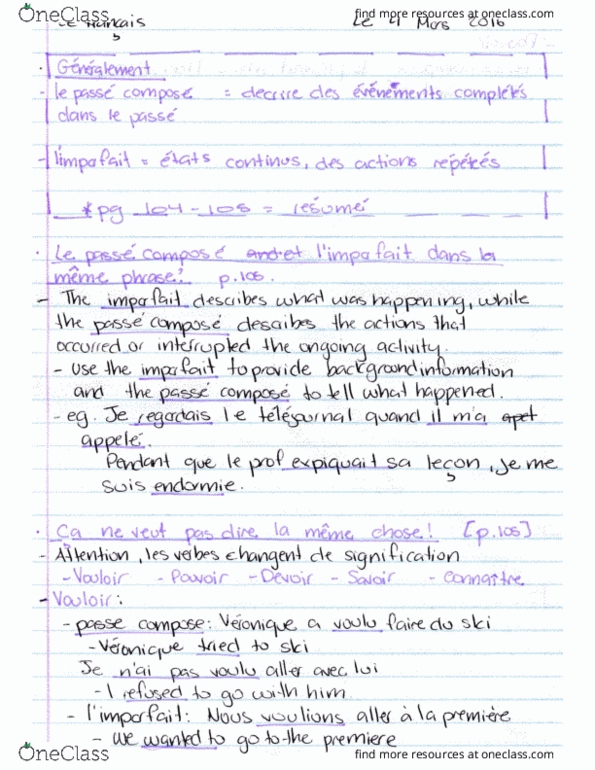 OneClass find more resources at oneclass.com
Le français Le 4 Mars 2016
. Généralement
- le passé composé = decrire des événements complétés
dans le passé
- l'imparfait = états continus, des actions répétés
*pg 104 - 105 = résumé
. Le passé composé and et l'imparfait dans la
même phrase! p.105.
- The imparfait describes what was happening, while
the passé composé describes the actions that
occurred or interrupted the ongoing activity.
- use the imparfait to provide background information
and the passé composé to tell what happened.
- eg. Je regardais le téléjournal quand il m'a apel
appelé.
Pendant que le prof expiquait sa leçon, je me
suis endormie.
. Ça ne veut pas dire la même chose! [p.105]
- Attention, les verbes changent de signification
- Vouloir - Pouvoir - Devoir - Savoir - Connaître
- Vouloir:
- passe compose: Véronique a voulu faire du ski
- Véronique tried to ski
Je n'ai pas voulu aller avec lui
- I refused to go with him
- l'imparfait: Nous voulions aller à la première
- we wanted to go to the premiere
OneClass find more resources at oneclass.com